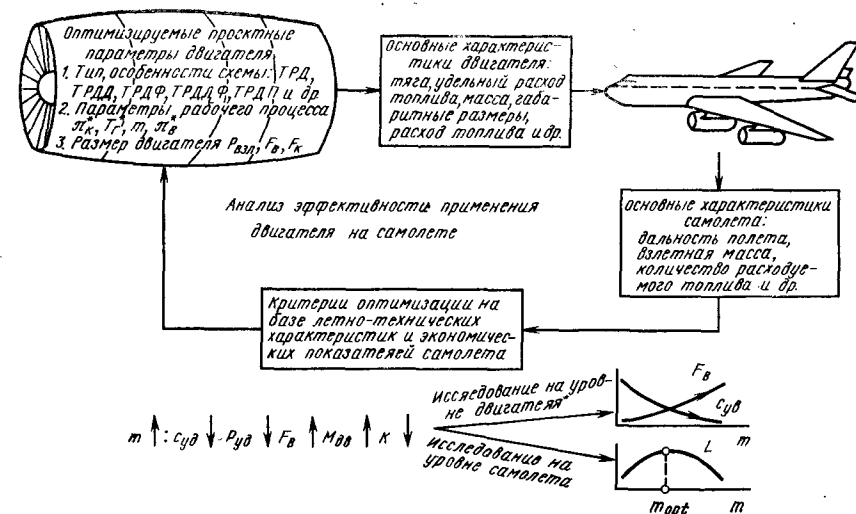 Оптимизируемые проектные
параметры двигателя
1. Тип, особенности схемы: ТРД,
ТРДД, ТРДФ, ТРДДФ, ТРДП и др.
2. Параметры рабочего процесса
π*к, T*г, m, π*в
3. Размер двигателя Pвзл, Fв, Fк
Основные характерис-
тики двигателя:
тяга, удельный расход
топлива, масса, габа-
ритные размеры,
расход топлива и др.
Анализ эффективности применения
двигателя на самолете
Основные характеристики
самолета:
дальность полета,
взлетная масса,
количество расходуе-
мого топлива и др.
Критерии оптимизации на
базе летно-технических
характристик и экономичес-
ких показателей самолета
m ↑: cуд ↓ Pуд ↓ Fв ↑ Mдв ↑ K ↓
Исследование на уров-
не двигателя*
Исследование на
уровне самолета
Fв
cуд
m
L
mopt m